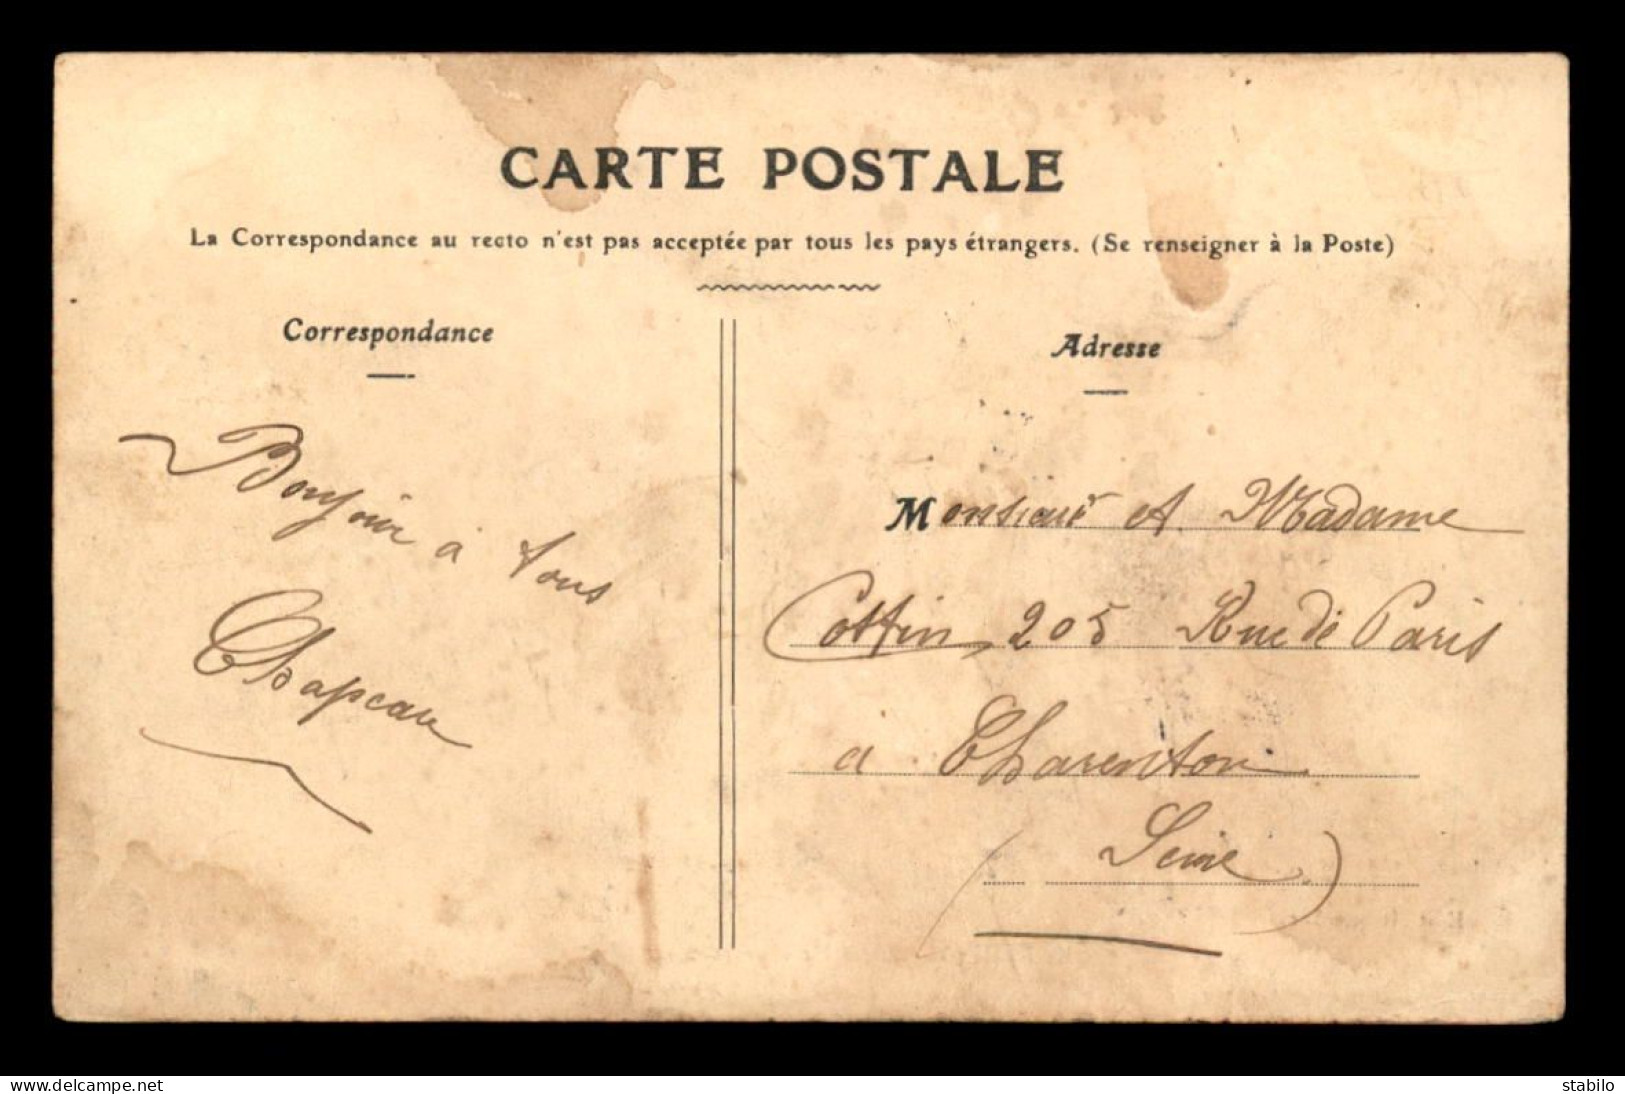 CARTE POSTALE
La Correspondance au recto n'est pas acceptée par tous les pays étrangers. (Se renseigner à la Poste)
Correspondance
Bonjour à tous
Chapeau
Adresse
Monsieur et Madame
Cottin 205 Rue de Paris
a Charenton
(Seine)
www.delcampe.net
stabilo